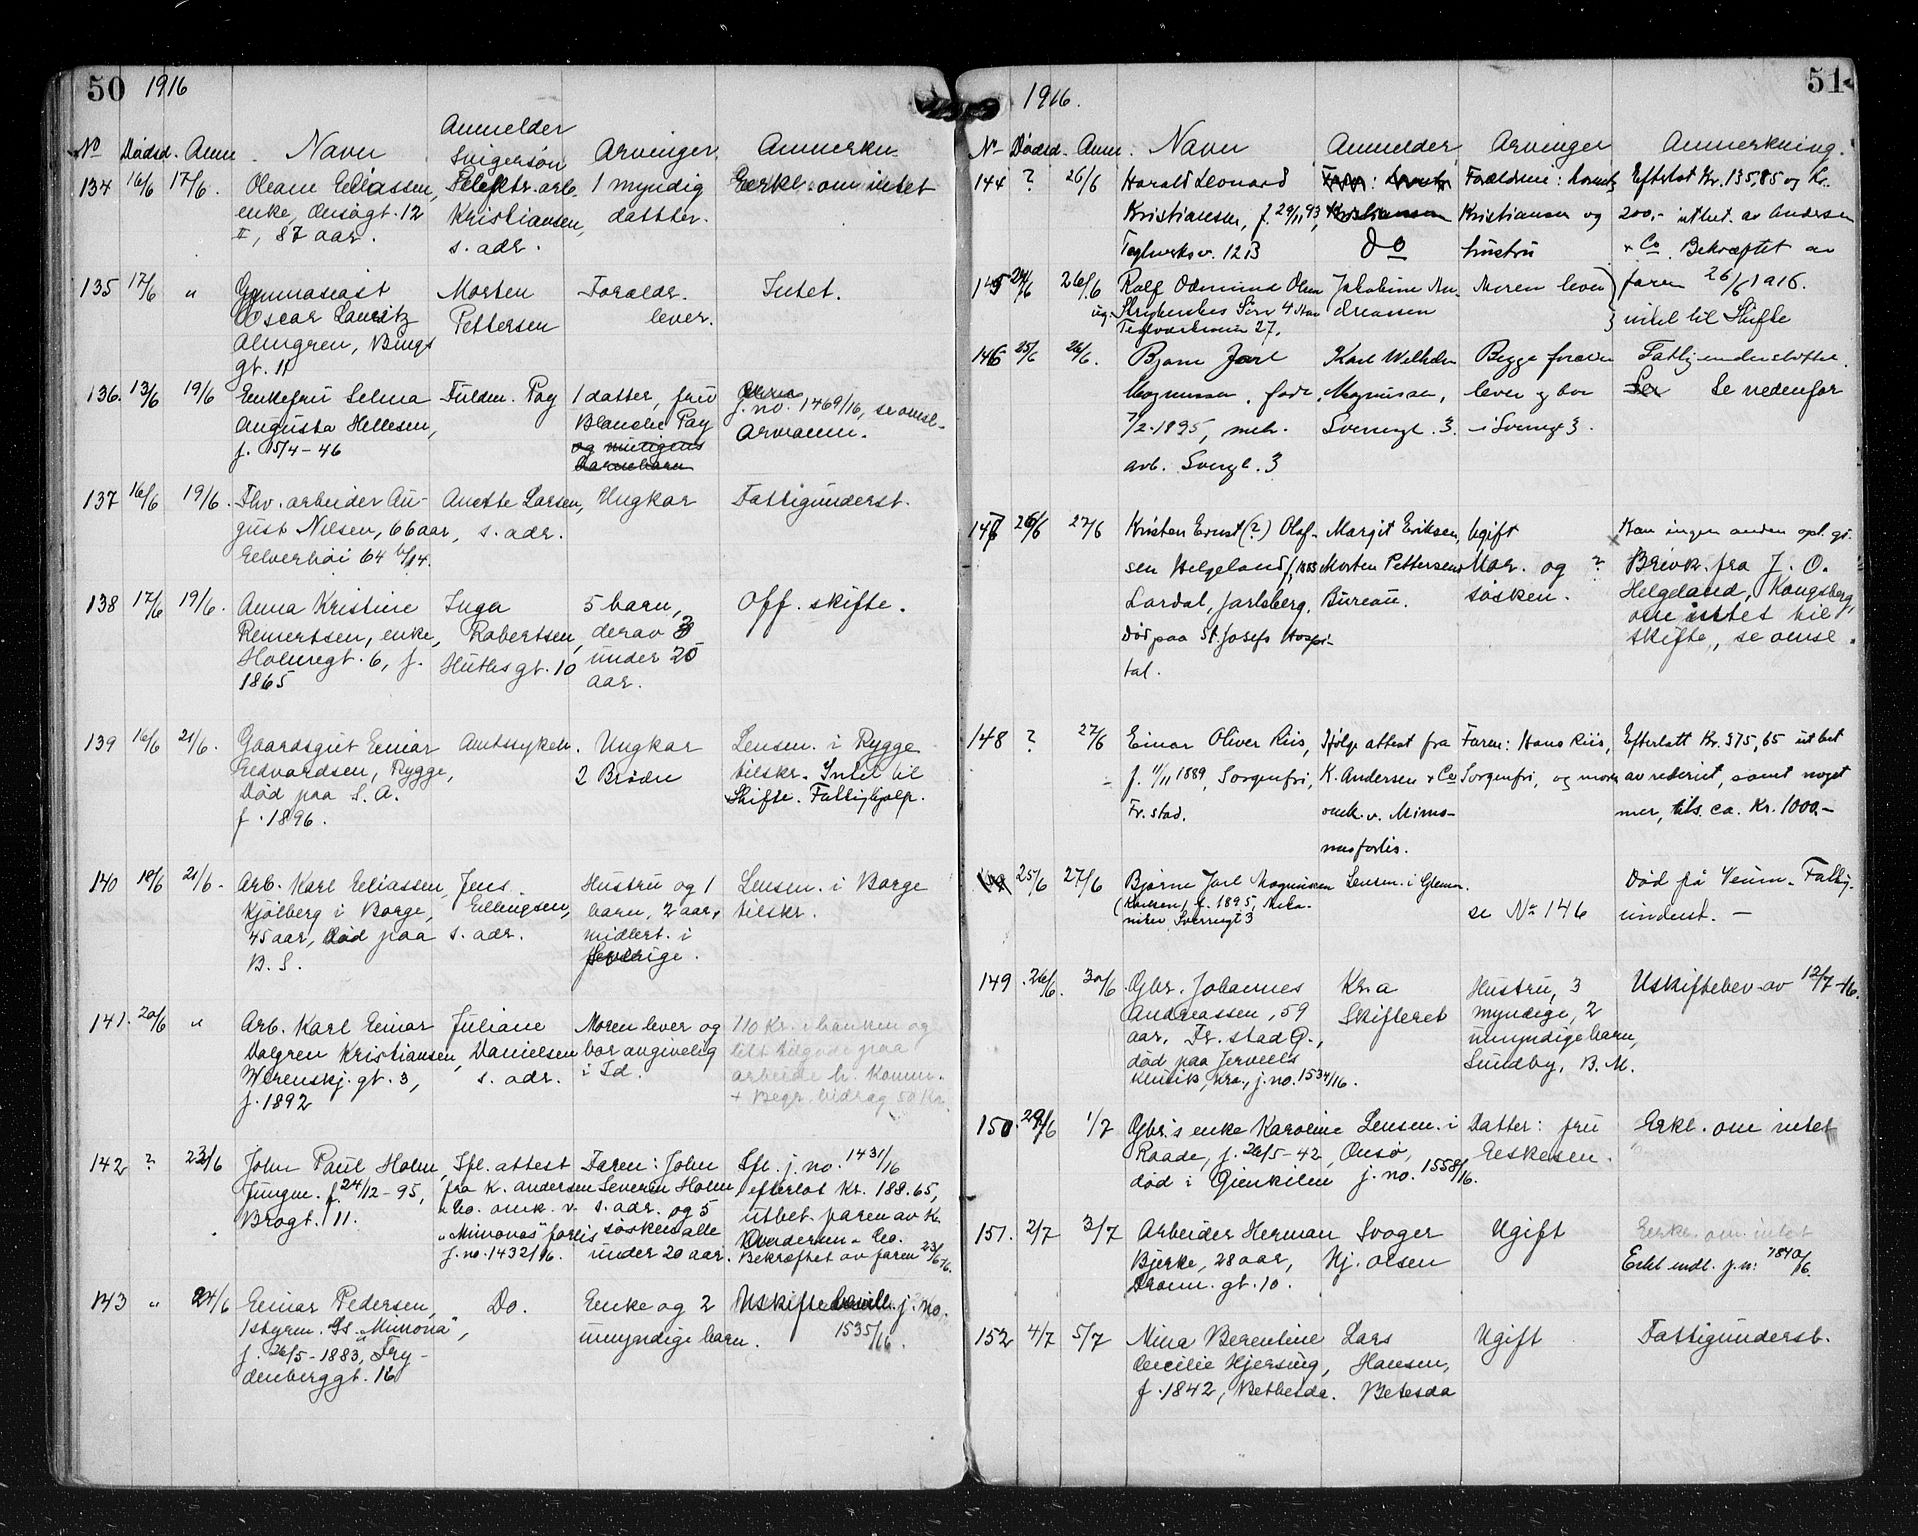 50 1916
No Dödsd. Anm. Navn Anmelder Arvinger Anmerkn
134 16/6 17/6. Oleane Eliassen, Svigersön
enke, Onsögt. 12 Kristiansen, 1 myndig Erkl. om intet
II, 87 aar. s. adr. datter.
135 17/6 " Gymnasiast Morten Foreldr. Intet.
Oscar Lauritz Pettersen lever.
Almgren, Bings
gt. 11
136. 13/6 19/6 Enkefru Selma Fuldm. Pay 1 datter, fru j. no. 1469/16, se omsl.
Augusta Hellesen, Blanche Pay
f. 15/4-46 og
barnebarn
137 16/6 19/6. Fhv. arbeider Au- Anette Larsen, Ungkar Fattigunderst.
gust Nilsen, 66 aar, s. adr.
Elverhöi 64
138 17/6 19/6. Anna Kristine Inga 5 barn, Off. skifte.
Reinertsen, enke, Robertsen, derav 3
Holmegt. 6, f. gt. 10 under 20
1865 aar.
139 16/6 21/6. Gaardsgut Einar Amtssykeh. Ungkar Lensm. i Rygge
Edvardsen, Rygge, 2 Brödre tilskr. Intet til
Död paa S. A. Skifte. Fattighjælp.
f. 1896.
140 18/6 21/6. Arb. Karl Eliassen, Jens Hustru og 1 Lensm. i Borge
Kjölberg i Borge, Ellingsen, barn, 2 aar, tilskr.
45 aar, död paa s. adr. midlert. i
B. S. Sverige.
141. 20/6 " Arb. Karl Einar Juliane Moren lever og 110 Kr. i banken og
Dalgren Kristiansen, Danielsen bor angivelig litt tilgode paa
Werenskj. gt. 3, s. adr. i Id. arbeide h. Komm.
f. 1892 + Begr. bidrag 50 Kr.
142 ? 23/6 John Paul Holm, Ifl. attest Faren: John Ifl. j. no. 1431/16
Jungm. f. 24/12-95, fra K. Andersen Severin Holm, efterlot Kr. 188.65,
Brogt. 11. & Co. omk. v. s. adr. og 5 utbet. faren av K.
"Mimonas" forlis söskend alle Andersen & Co.
j. no. 1432/16. under 20 aar. Bekræftet av faren 23/6-16.
143 " 24/6 Einar Pedersen, Do. Enke og 2 Uskiftebevill. j. no.
1styrm. S/s "Mimona", umyndige barn. 1535/16.
f. 26/5-1883, Fry-
denberggt. 16
1916. 51
No Dödsd. Anm. Navn Anmelder Arvinger Anmerkning.
144 ? 26/6 Harald Leonard Foreldrene: Efterlot Kr. 135,85 og Kr.
Kristiansen, f. 29/11 93, Kristiansen Kristiansen og 200,- utbet. av Andersen
Teglverksv. 12 B Do hustru & Co. Bekræftet av
145 24/6 26/6 Rolf Odmund Olsen Jakobine An- Moren lever faren 26/6 1916.
Sön 4 dreassen intet til Skifte
27.
146 25/6 26/6. Bjarne Jarl Karl Wilhelm Begge foreldre Fattigunderstöttet.
Magnussen, födt Magnussen, lever og bor Se nedenfor
7/2-1895, mek. Sverregt. 3. i Sverregt 3.
arb. Sverregt. 3
147 26/6 27/6 Kristen Ernst (?) Olaf- Margit Eriksen, Ugift Kan ingen anden opl. gi.
sen Helgeland, f. 1885 Morten Pettersens Mor. og ? Brevk. fra J. O.
Lardal, Jarlsberg, Bureau. sösken. Helgeland, Kongsberg,
död paa St. Josefs Hospi- om intet til
tal. skifte, se omsl.
148 ? 27/6 Einar Oliver Riis, Ifölge attest fra Faren: Hans Riis, Efterlatt Kr. 375,65 utbet
f. 11/11 1889, Sorgenfri, K. Andersen & Co Sorgenfri, og moren av rederiet, samt noget
Fr. stad. omk. v. Mimo- mer, tils. ca. Kr. 1000.-
nas forlis.
25/6 27/6 Bjarne Jarl Magnussen Lensm. i Glemm. Död på Veum. Fattig-
f. 1895, se No 146 underst. -
Sverregt 3
149 26/6. 30/6. Gbr. Johannes Kr.a Hustru, 3 Uskiftebev. av 12/7-16.
Andreassen, 59 Skifteret myndige, 2
aar, Fr. stad G., umyndige barn,
död paa Jervells Sundby, B. M.
Klinik, Kra, j. no. 1534/16.
150. 29/6 1/7 Gbr.'s enke Karoline Lensm. i Datter: fru Erkl. om intet
Raade, f. 26/5-42, Onsö, Eskesen.
död i Gjenkilen j. no. 1558/16.
151. 2/7 3/7 Arbeider Herman Svoger Ugift Erkl. om intet
Bjerke, 28 aar, Hj. Olsen Erkl. indl. j. n: 1840/16.
Dronn. gt. 10.
152 4/7 5/7 Nina Berentine Lars Ugift Fattigunderst.
Cecilie Hjersing, Hansen,
f. 1842, Bethesda. Betesda